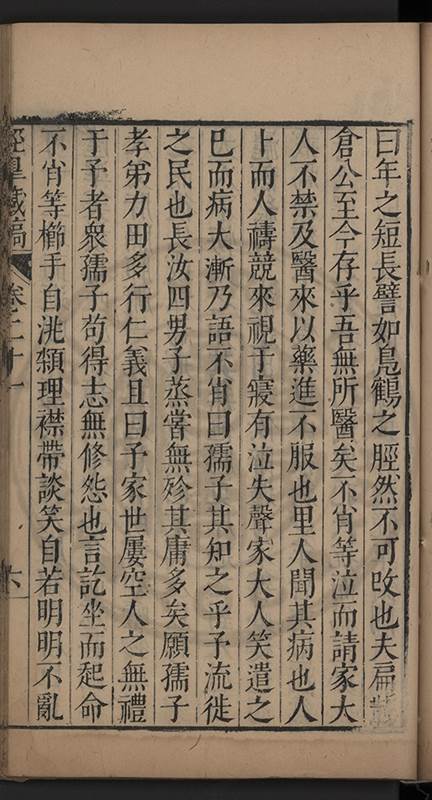 曰年之短長譬如鳧鶴之脛然不可攺也夫扁
倉公至今存乎吾無所醫矣不肖等泣而請家大
人不禁及醫來以藥進不服也里人聞其病也人
卜而人禱競來視于寢有泣失聲家大人笑遣之
已而病大漸乃語不肖曰孺子其知之乎予流徙
之民也長汝四男子蒸嘗無殄其庸多矣願孺子
孝弟力田多行仁義且曰予家世屢空人之無禮
于予者衆孺子苟得志無修怨也言訖坐而起命
不肖等櫛手自洮纇理襟帶談笑自若明明不亂
經臯藏稿 卷二十一 六